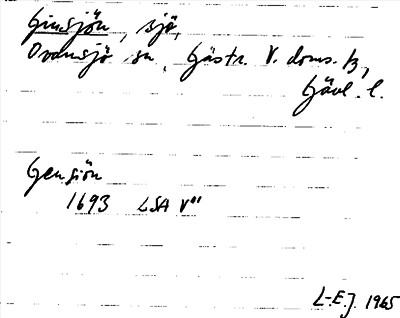 Ginsjön, sjö,
Ovansjö sn, Gästr. V. doms.
Gävl. l.
Gensiön
1693 LSA V11
L-E.J. 1965